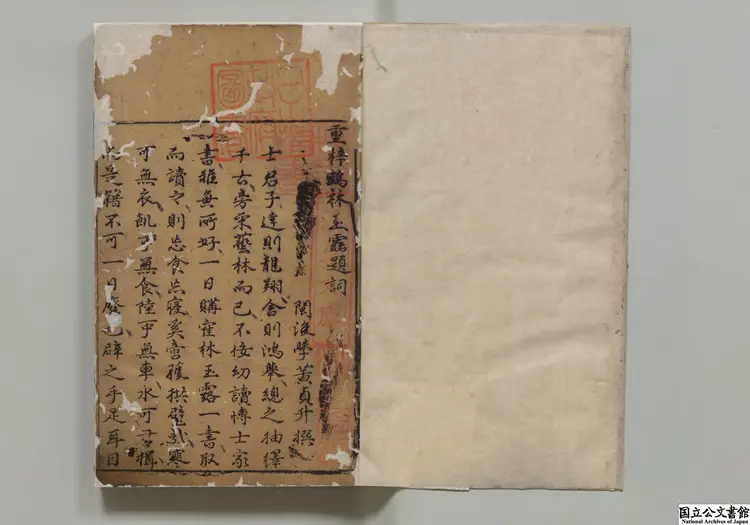 重梓鶴林玉露題詞
閩後學黃貞升撰
士君子達則龍翔舍則鴻舉總之抽繹
千古旁采藝林而已不佞幼讀博士家
書雅無所好一日購霍林玉露一書取
而讀之則忘食忘寢奚啻獲拱璧哉寒
可無衣飢可無食陸可無車水可無楫
是籍不可一日廢也辟之手足耳目
国立公文書館
National Archives of Japan